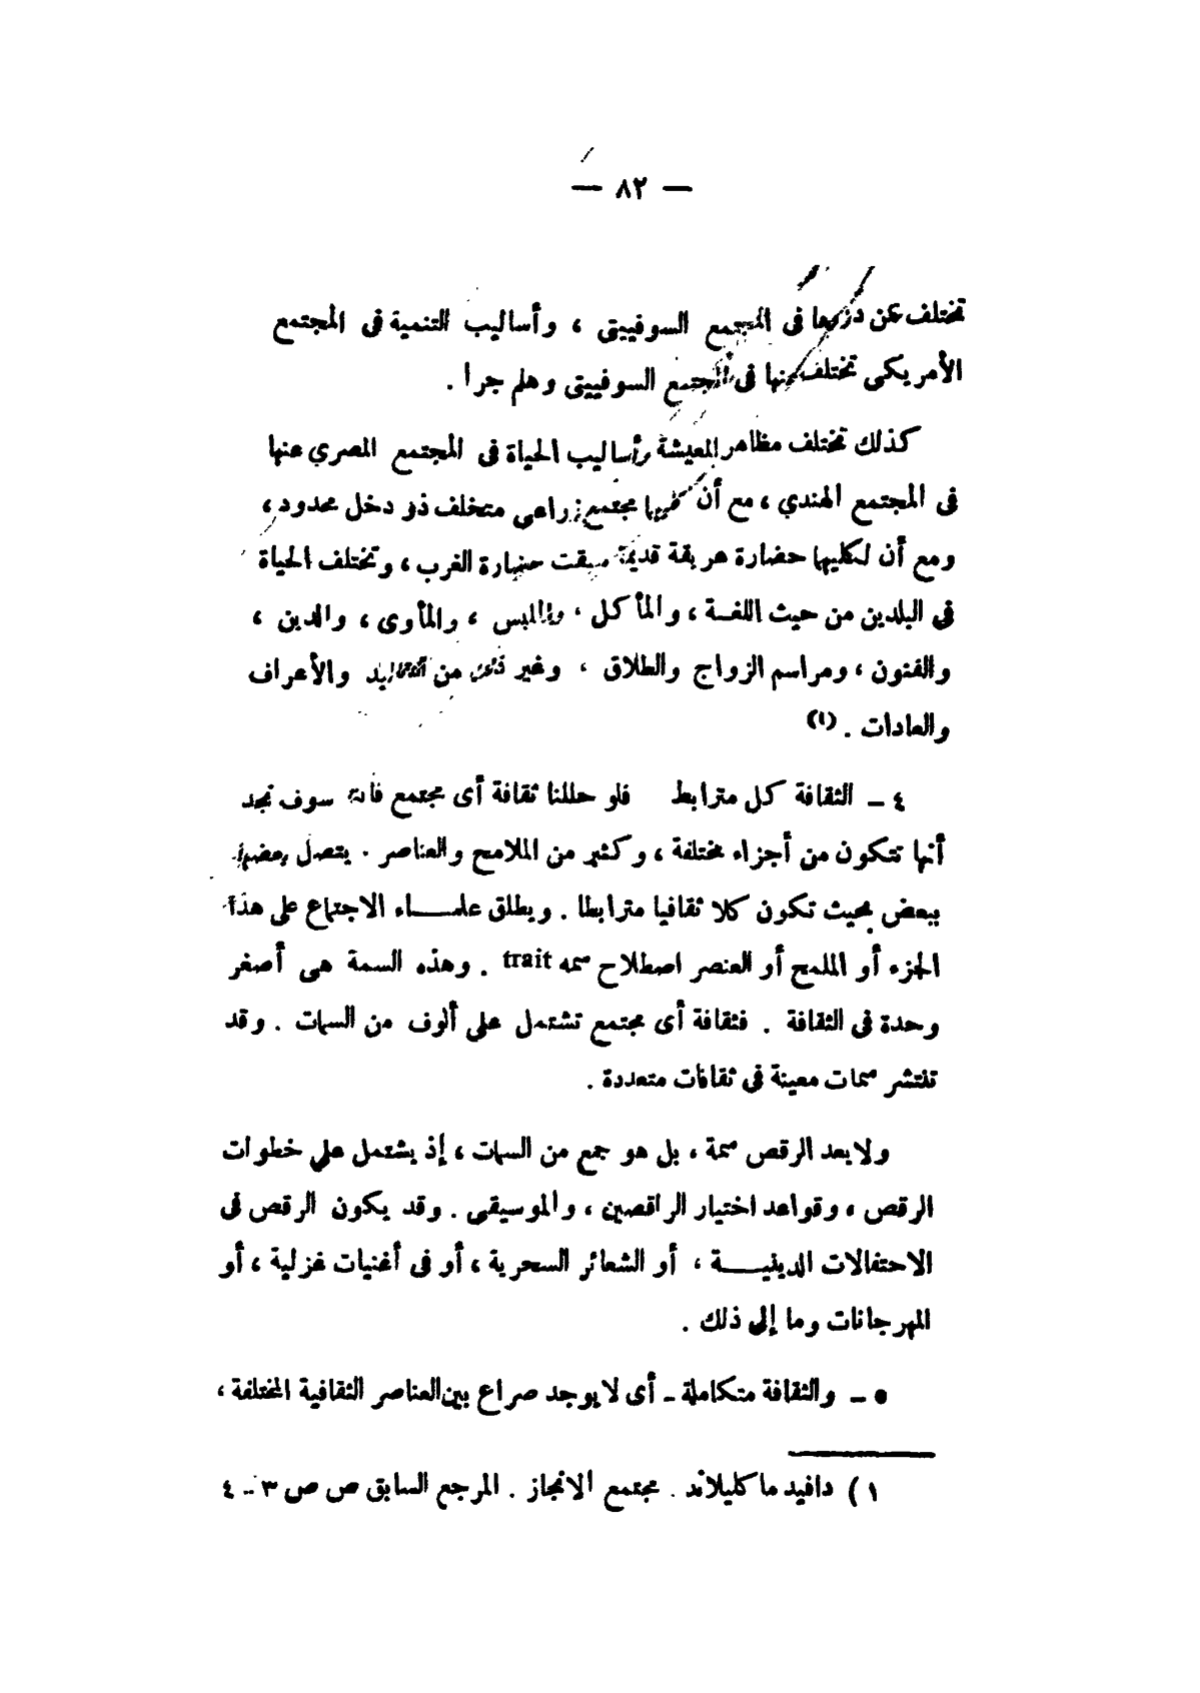 — ٨٢ —
تختلف عن دورها فى المجتمع السوفييتى ، وأساليب التنمية فى المجتمع
الأمريكى تختلف عنها فى المجتمع السوفييتى وهلم جرا .
كذلك تختلف مظاهر المعيشة وأساليب الحياة فى المجتمع المصري عنها
فى المجتمع الهندي ، مع أن كليهما مجتمع زراعى متخلف ذو دخل محدود ،
ومع أن لكليهما حضارة عريقة قديمة سبقت حضارة الغرب ، وتختلف الحياة
فى البلدين من حيث اللغـة ، والمأكل ، والملبس ، والمأوى ، والدين ،
والفنون ، ومراسم الزواج والطلاق ، وغير ذلك من التقاليد والأعراف
والعادات . (١)
٤ – الثقافة كل مترابط فلو حللنا ثقافة أى مجتمع فانه سوف نجد
أنها تتكون من أجزاء مختلفة ، وكثير من الملامح والعناصر . يتصل بعضها
ببعض بحيث تكون كلا ثقافيا مترابطا . ويطلق علمـــاء الاجتماع على هذا
الجزء أو الملمح أو العنصر اصطلاح سمه trait . وهذه السمة هى أصغر
وحدة فى الثقافة . فثقافة أى مجتمع تشتمل على ألوف من السمات . وقد
تنتشر سمات معينة فى ثقافات متعددة .
ولا يعد الرقص سمة ، بل هو جمع من السمات ، إذ يشتمل على خطوات
الرقص ، وقواعد اختيار الراقصين ، والموسيقى . وقد يكون الرقص فى
الاحتفالات الدينيـــة ، أو الشعائر السحرية ، أو فى أغنيات غزلية ، أو
المهرجانات وما إلى ذلك .
٥ – والثقافة متكاملة – أى لا يوجد صراع بين العناصر الثقافية المختلفة ،
١ ) دافيد ماكليلاند . مجتمع الانجاز . المرجع السابق ص ص ٣ – ٤